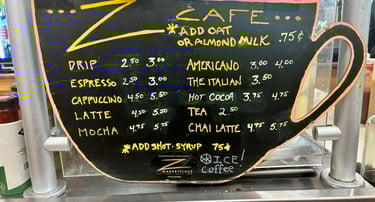 Z CAFE...
*ADD OAT
OR ALMOND MILK .75¢
DRIP 2.50 3.00
ESPRESSO 2.50 3.00
CAPPUCCINO 4.50 5.50
LATTE 4.50 5.50
MOCHA 4.75 5.75
AMERICANO 3.00 4.00
THE ITALIAN 3.50
HOT COCOA 3.75 4.75
TEA 2.50
CHAI LATTE 4.75 5.75
*ADD SHOT-SYRUP 75¢
Z
MARKETPLACE
ICE!
Coffee